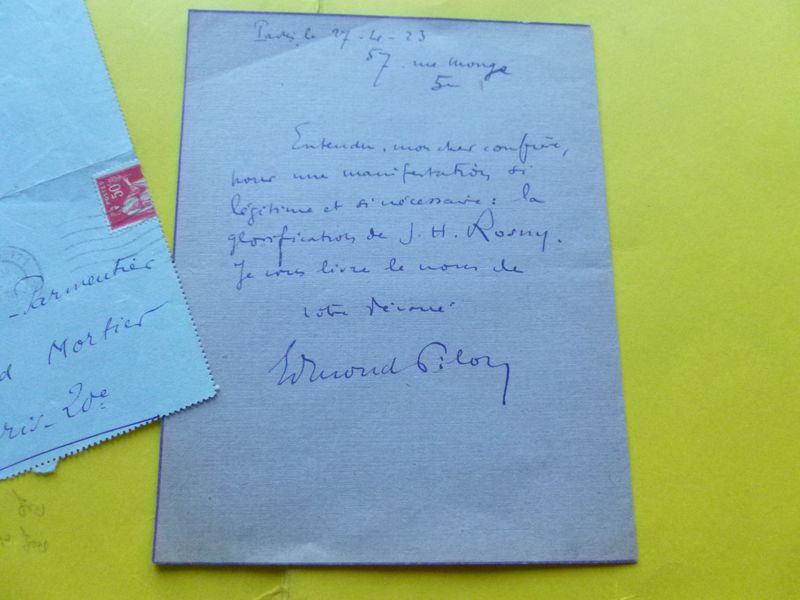 Paris le 27-4-23
57 rue Monge
5e
Entendu, mon cher confrère,
pour une manifestation si
légitime et si nécessaire : la
glorification de J. H. Rosny.
Je vous livre le nom de
votre dévoué
Edmond Pilon
50c
POSTES
Parmentier
d Mortier
ris-20e